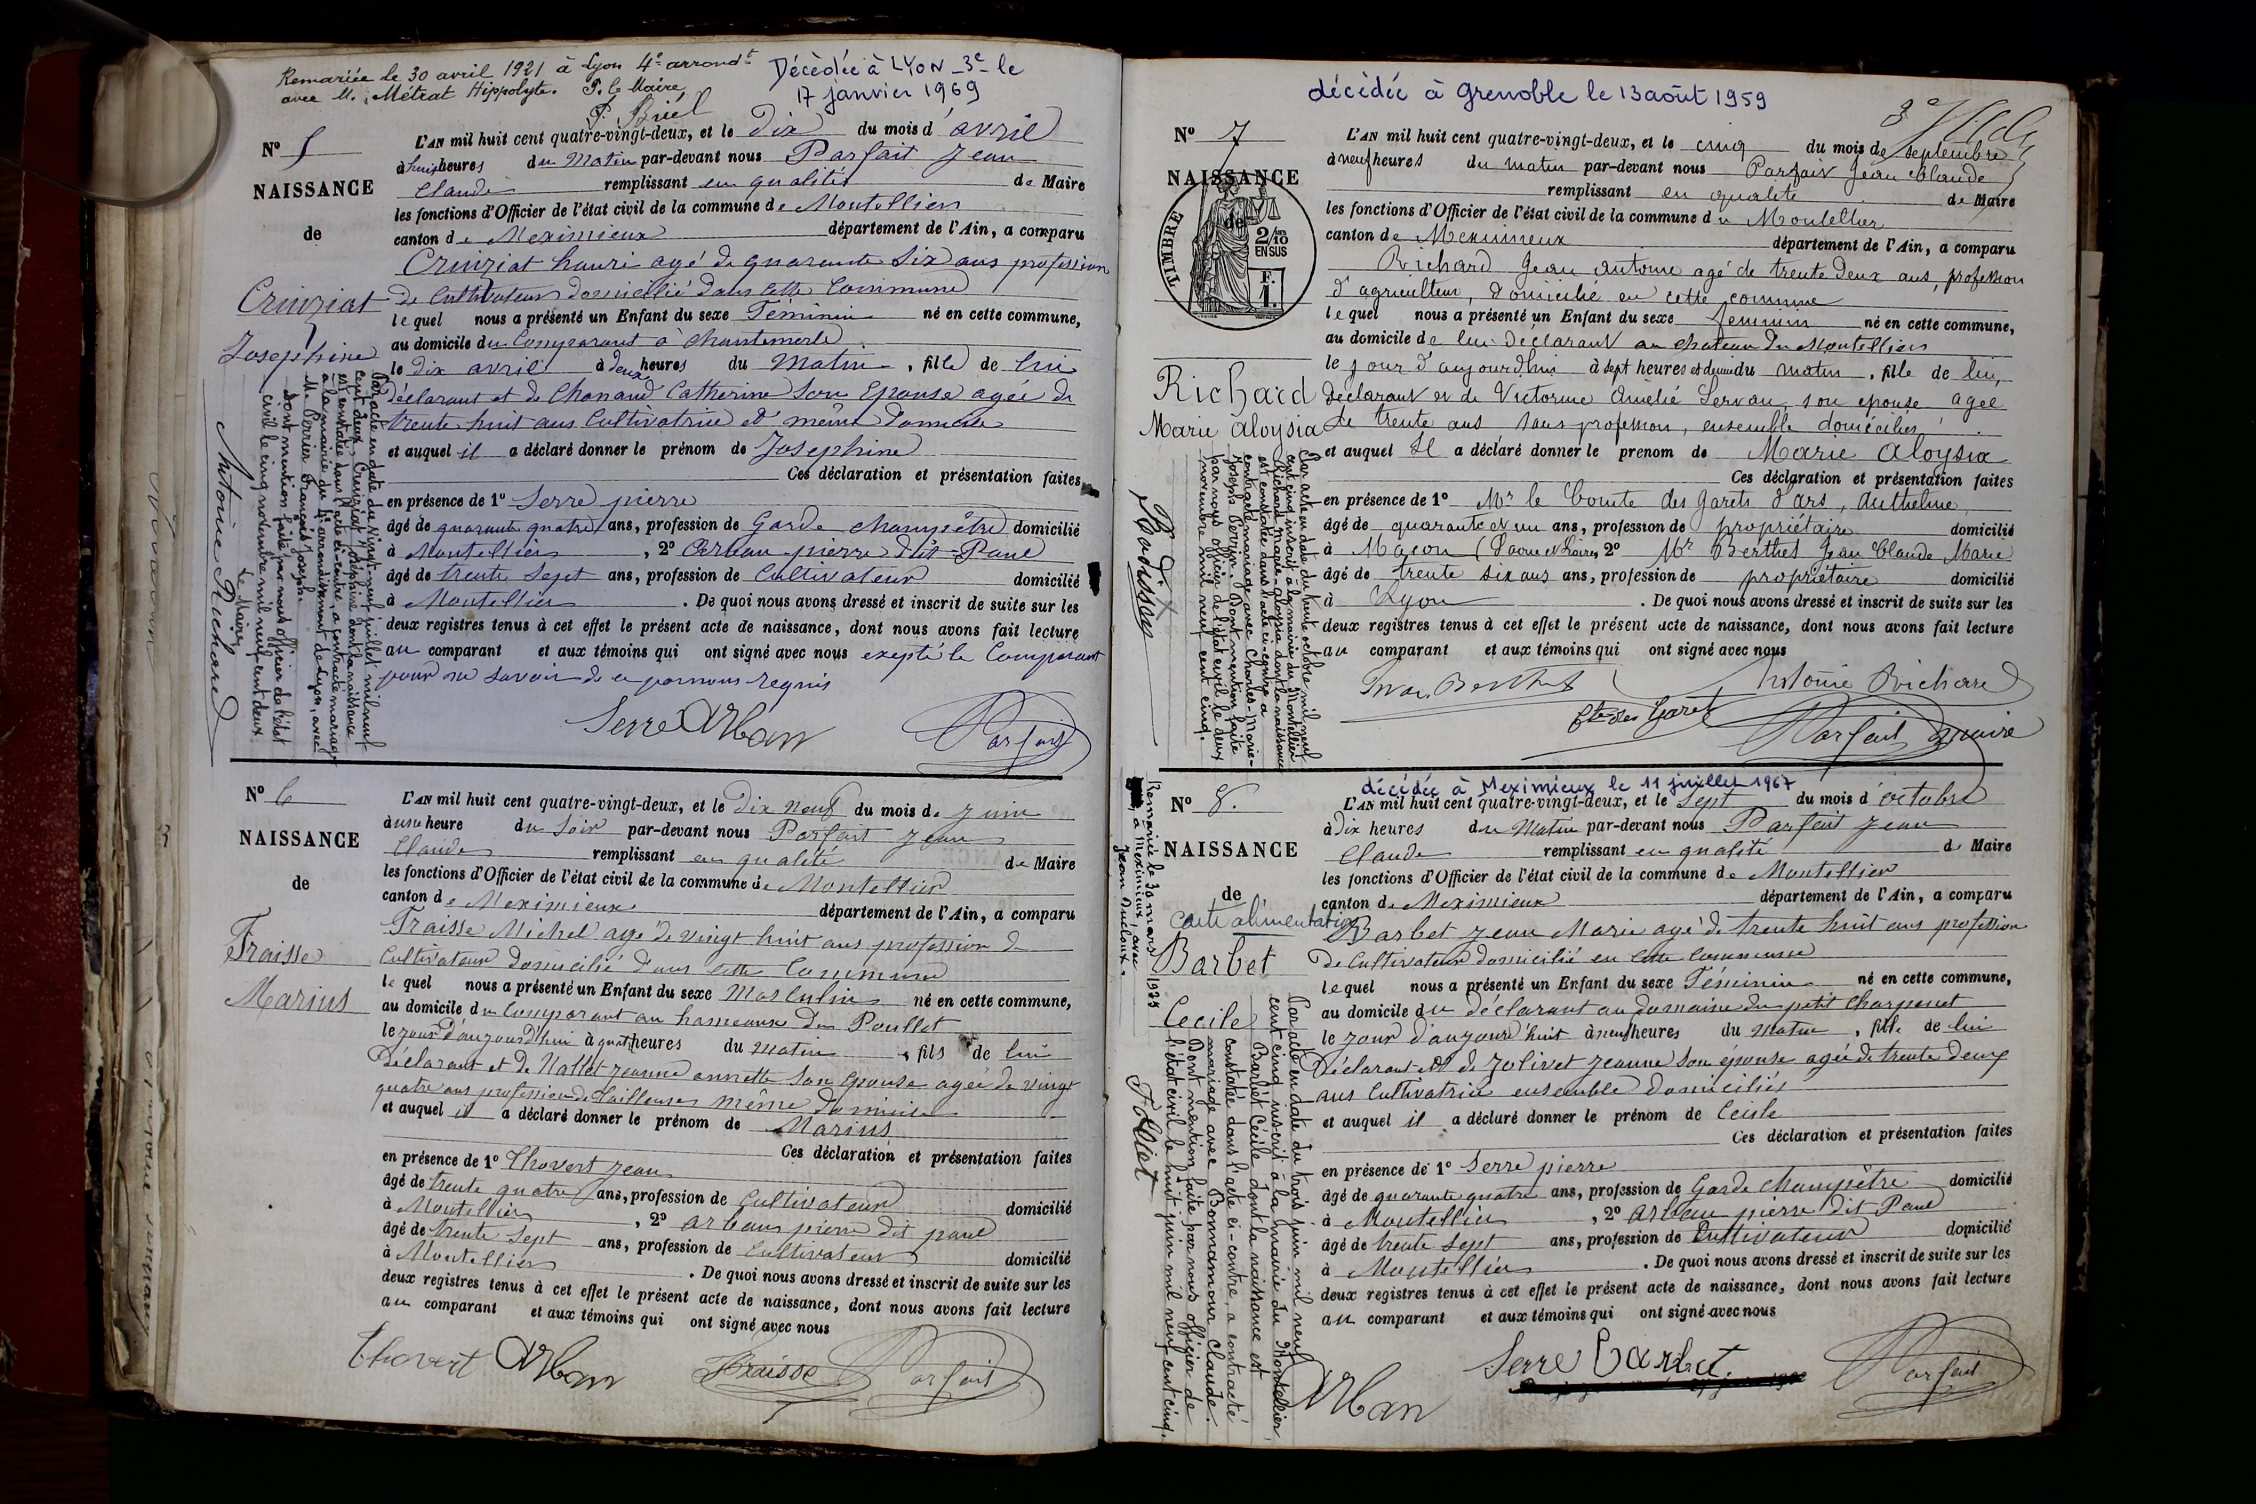 Remariée le 30 avril 1921 à Lyon 4e arrondt
avec M. Métrat Hippolyte. P. le Maire
Décèdée à LYON _3e_ le
17 janvier 1969
No 5
NAISSANCE
de
Cruiziat
Josephine
L'AN mil huit cent quatre-vingt-deux, et le Dix du mois d'avril
à huit heures du Matin par-devant nous Parfait Jean
Claude remplissant en qualité de Maire
les fonctions d'Officier de l'état civil de la commune de Montellier
canton de Meximieux département de l'Ain, a comparu
Cruiziat henri agé de quarante Six ans profession
de Cultivateur Domicilié dans cette Commune
lequel nous a présenté un Enfant du sexe Féminin né en cette commune,
au domicile du Comparant à Chantemerle
le dix avril à deux heures du Matin, fille de lui
déclarant et de Chanand Catherine Son Epouse agée de
trente huit ans Cultivatrice et même Domicile
et auquel il a déclaré donner le prénom de Josephine
Ces déclaration et présentation faites
en présence de 1o Serre pierre
âgé de quarante quatre ans, profession de Garde champêtre domicilié
à Montellier, 2o Arban pierre dit Paul
âgé de trente Sept ans, profession de Cultivateur domicilié
à Montellier. De quoi nous avons dressé et inscrit de suite sur les
deux registres tenus à cet effet le présent acte de naissance, dont nous avons fait lecture
au comparant et aux témoins qui ont signé avec nous excepté le Comparant
pour ne savoir de ce par nous requis
Serre Arban Parfait
Par acte en date du vingt-neuf juillet mil neuf
cent deux, Cruiziat Joséphine dont la naissance
est constatée dans l'acte ci-contre, a contracté mariage
à la mairie du 4e arrondissement de Lyon, avec
M. Perrier François Joseph.
Dont mention faite par nous officier de l'état
civil le cinq novembre mil neuf cent deux.
Le Maire,
Antoine Richard
No 6
NAISSANCE
de
Fraisse
Marius
L'AN mil huit cent quatre-vingt-deux, et le Dix neuf du mois de Juin
à une heure du Soir par-devant nous Parfait Jean
Claude remplissant en qualité de Maire
les fonctions d'Officier de l'état civil de la commune de Montellier
canton de Meximieux département de l'Ain, a comparu
Fraisse Michel agé de vingt huit ans profession de
Cultivateur Domicilié dans cette Commune
lequel nous a présenté un Enfant du sexe Masculin né en cette commune,
au domicile du Comparant au hameaux du Poullet
le jour d'aujourd'hui à quatre heures du matin, fils de lui
Déclarant et de Nallet Jeanne annette Son Epouse agée de vingt
quatre ans profession de Tailleuse même domicile
et auquel il a déclaré donner le prénom de Marius
Ces déclaration et présentation faites
en présence de 1o Chovert Jean
âgé de trente quatre ans, profession de Cultivateur domicilié
à Montellier, 2o arban pierre dit paul
âgé de trente Sept ans, profession de Cultivateur domicilié
à Montellier. De quoi nous avons dressé et inscrit de suite sur les
deux registres tenus à cet effet le présent acte de naissance, dont nous avons fait lecture
au comparant et aux témoins qui ont signé avec nous
Chovert Arban Fraisse Parfait
décédée à Grenoble le 13 août 1959
No 7
NAISSANCE
de
TIMBRE
2/10
EN SUS
F.
1.
Richard
Marie Aloysia
L'AN mil huit cent quatre-vingt-deux, et le cinq du mois de septembre
à neuf heures du matin par-devant nous Parfait Jean Claude
remplissant en qualité de Maire
les fonctions d'Officier de l'état civil de la commune du Montellier
canton de Meximieux département de l'Ain, a comparu
Richard Jean Antoine agé de trente deux ans, profession
d'agriculteur, domicilié en cette commune
lequel nous a présenté un Enfant du sexe feminin né en cette commune,
au domicile de lui déclarant au chateau du Montellier
le jour d'aujourd'hui à sept heures et demie du matin, fille de lui,
declarant et de Victorine Amélie Servan, son epouse agee
de trente ans sans profession, ensemble domiciliés
et auquel il a déclaré donner le prenom de Marie Aloysia
Ces déclaration et présentation faites
en présence de 1o Mr le Comte des Garets d'ars, Anthelme,
âgé de quarante et un ans, profession de propriétaire domicilié
à Macon (Saone et Loire), 2o Mr Berthet Jean Claude Marie
âgé de trente six ans ans, profession de propriétaire domicilié
à Lyon. De quoi nous avons dressé et inscrit de suite sur les
deux registres tenus à cet effet le présent acte de naissance, dont nous avons fait lecture
au comparant et aux témoins qui ont signé avec nous
Berthet Antoine Richard
Cte des Garets Parfait maire
Par acte en date du trente octobre mil neuf
cent cinq inscrit à la mairie du Montellier
Richard Marie-Aloysia dont la naissance
est constatée dans l'acte ci-contre a
contracté mariage avec Charles-Marie-
Joseph Perrin. Dont mention faite
par nous officier de l'état civil le deux
novembre mil neuf cent cinq.
décédée à Meximieux le 11 juillet 1967
No 8.
NAISSANCE
de
Carte alimentation
Barbet
Cecile
L'AN mil huit cent quatre-vingt-deux, et le Sept du mois d'octobre
à Dix heures du Matin par-devant nous Parfait Jean
Claude remplissant en qualité de Maire
les fonctions d'Officier de l'état civil de la commune de Montellier
canton de Meximieux département de l'Ain, a comparu
Barbet Jean Marie agé de trente huit ans profession
de Cultivateur domicilié en cette commune
lequel nous a présenté un Enfant du sexe Féminin né en cette commune,
au domicile du déclarant au domaine du petit Charpenet
le jour d'aujourd'huit à neuf heures du matin, fille de lui
Déclarant et de Jolivet Jeanne Son épouse agée de trente deux
ans Cultivatrice ensemble domiciliés
et auquel il a déclaré donner le prénom de Cecile
Ces déclaration et présentation faites
en présence de 1o Serre pierre
âgé de quarante quatre ans, profession de Garde champêtre domicilié
à Montellier, 2o Arban pierre dit Paul
âgé de trente sept ans, profession de Cultivateur domicilié
à Montellier. De quoi nous avons dressé et inscrit de suite sur les
deux registres tenus à cet effet le présent acte de naissance, dont nous avons fait lecture
au comparant et aux témoins qui ont signé avec nous
Arban Serre Barbet Parfait
Par acte en date du trois juin mil neuf
cent cinq inscrit à la mairie du Montellier,
Barbet Cécile dont la naissance est
constatée dans l'acte ci-contre, a contracté
mariage avec Bonnamour Claude.
Dont mention faite par nous officier de
l'état civil le huit juin mil neuf cent cinq.
Remariée le 30 mars 1925
à Meximieux, avec
Jean Ducloux.